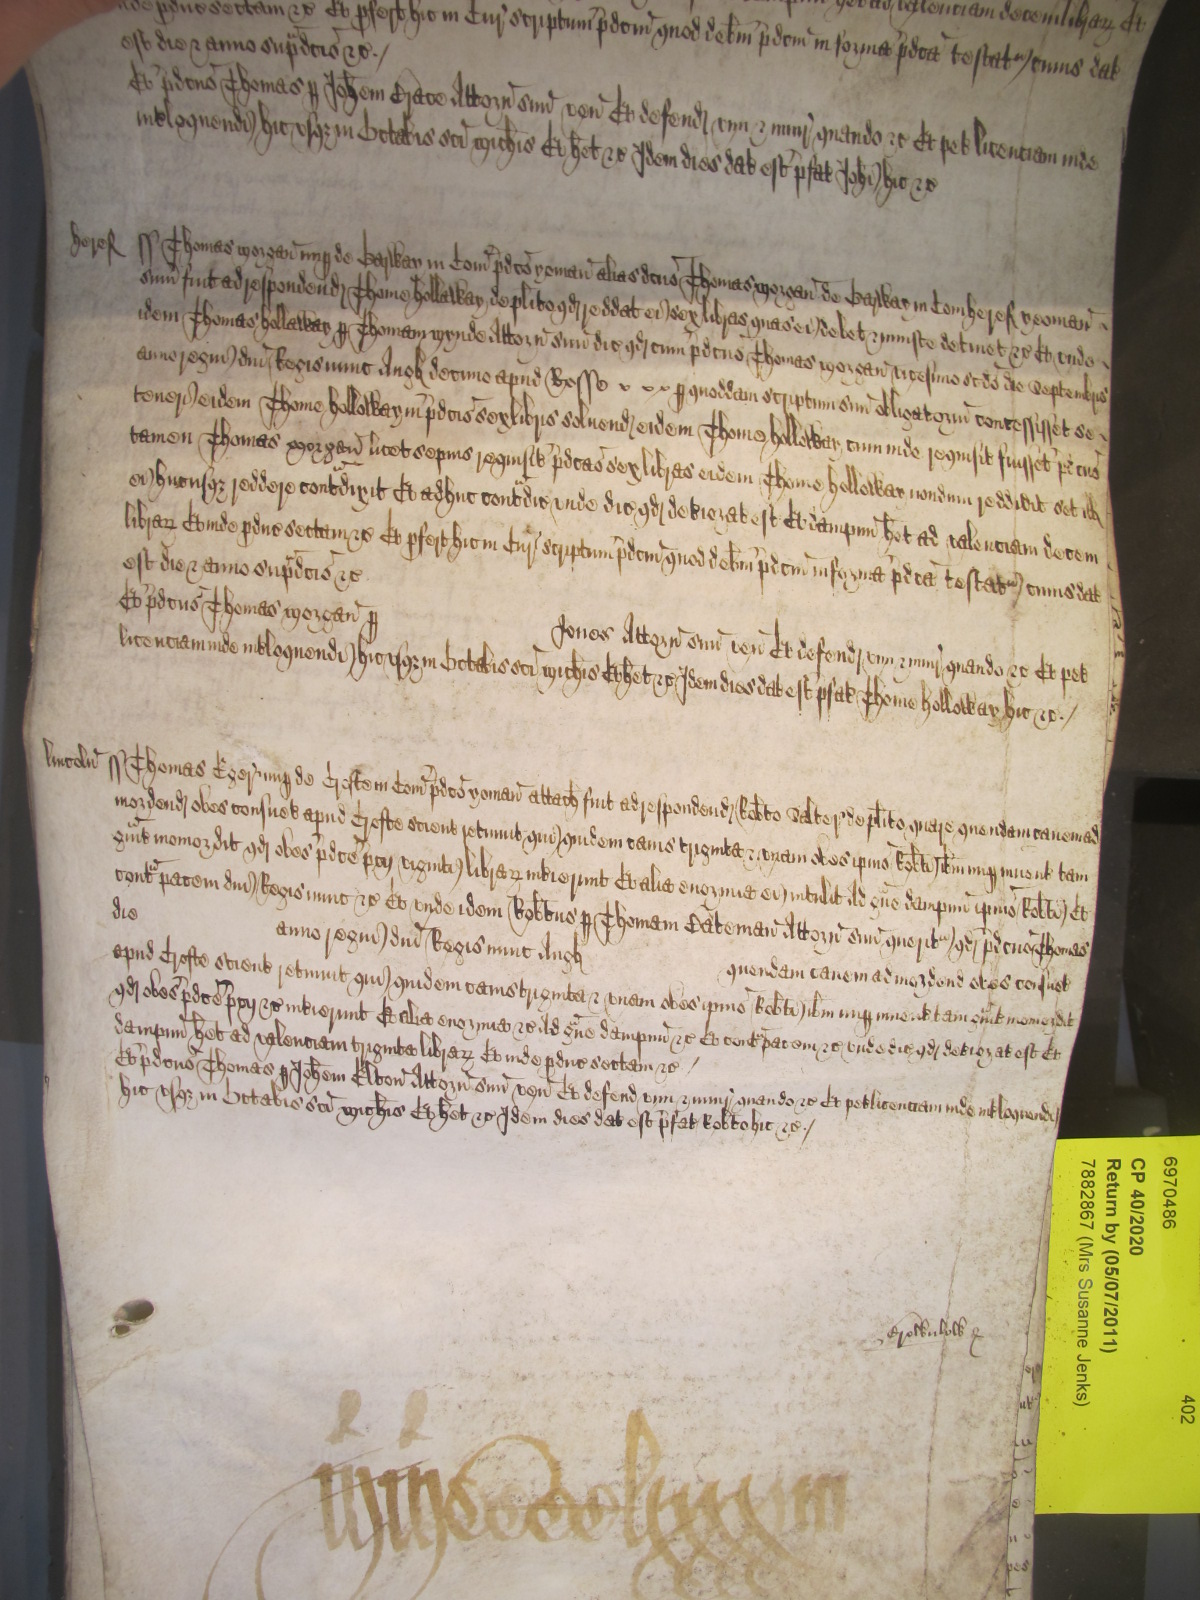 inde pduc sectam &c Et pfert hic in Cur scriptum pdcm quod debm pdcm in forma pdca testat cuius dat
est die & anno supdcis &c /
Et pdcus Thomas p Johem Attorn suu ven Et defend vim & iniur quando &c Et pet licenciam inde
intloquendi hic usqz in Octabis sci Michis Et het &c Idem dies dat est pfat Johi hic &c
Heref ss Thomas Morgan nup de in Com pdco yoman alias dcus Thomas Morgan de in Com Heref yeoman
sum fuit ad respondend Thome Hollway de plito qd reddat ei sex libras quas ei debet & iniuste detinet &c Et unde
idem Thomas Hollway p Thomam Wynde Attorn suu dic qd cum pdcus Thomas Morgan vicesimo scdo die Septembris
anno regni dni Regis nunc Angl decimo apud Rosse p quoddam scriptum suu obligatoriu concessisset se
teneri eidem Thome Hollway in pdcis sex libris solvend eidem Thome Hollway cum inde requisit fuisset pdcus
tamen Thomas Morgan licet sepius requisit pdcas sex libras eidem Thome Hollway nondum reddidit set ill
ei hucusqz reddere contdixit Et adhuc contdic unde dic qd deteriorat est Et dampnu het ad valenciam decem
librar Et inde pduc sectam &c Et pfert hic in Cur scriptum pdcm quod debm pdcm in forma pdca testat cuius dat
est die & anno supdcis &c
Et pdcus Thomas Morgan p Jones Attorn suu ven Et defend vim & iniur quando &c Et pet
licenciam inde intloquendi hic usqz in Octabis sci Michis Et het &c Idem dies dat est pfat Thome Hollway hic &c /
Lincoln ss Thomas nup de Crofte in Com pdco yoman attach fuit ad respondend Robto Salter de plito quare quendam canem ad
mordend oves consuet apud Crofte scient retinuit qui quidem canis triginta & unam oves ipius Robti ibm nup invent tam
gvit momordit qd oves pdce pcii viginti librar intierunt Et alia enormia ei intulit Ad gve dampnu ipius Robti Et
cont pacem dni Regis nunc &c Et unde idem Robtus p Thomam Bateman Attorn suu querit qd pdcus Thomas
die anno regni dni Regis nunc Angl quendam canem ad mordend oves consuet
apud Crofte scient retinuit qui quidem canis triginta & unam oves ipius Robti ibm nup invent tam gvit momordit
qd oves pdce pcii &c intierunt Et alia enormia &c Ad gve dampnu &c Et cont pacem &c unde dic qd deteriorat est Et
dampnu het ad valenciam triginta librar Et inde pduc sectam &c /
Et pdcus Thomas p Johem Elton Attorn suu ven Et defend vim & iniur quando &c Et pet licenciam inde intloquendi
hic usqz in Octabis sci Michis Et het &c Idem dies dat est pfat Robto hic &c /
6970486 402
CP 40/2020
Return by (05/07/2011)
7882867 (Mrs Susanne Jenks)